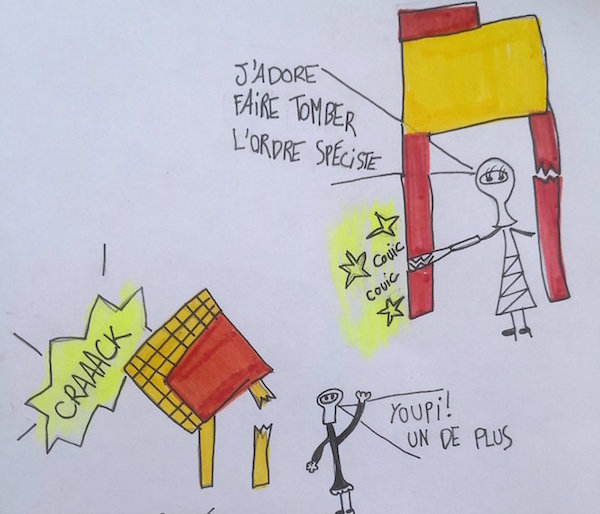 J'ADORE
FAIRE TOMBER
L'ORDRE SPÉCISTE
COUIC
COUIC
CRAAACK
YOUPI!
UN DE PLUS